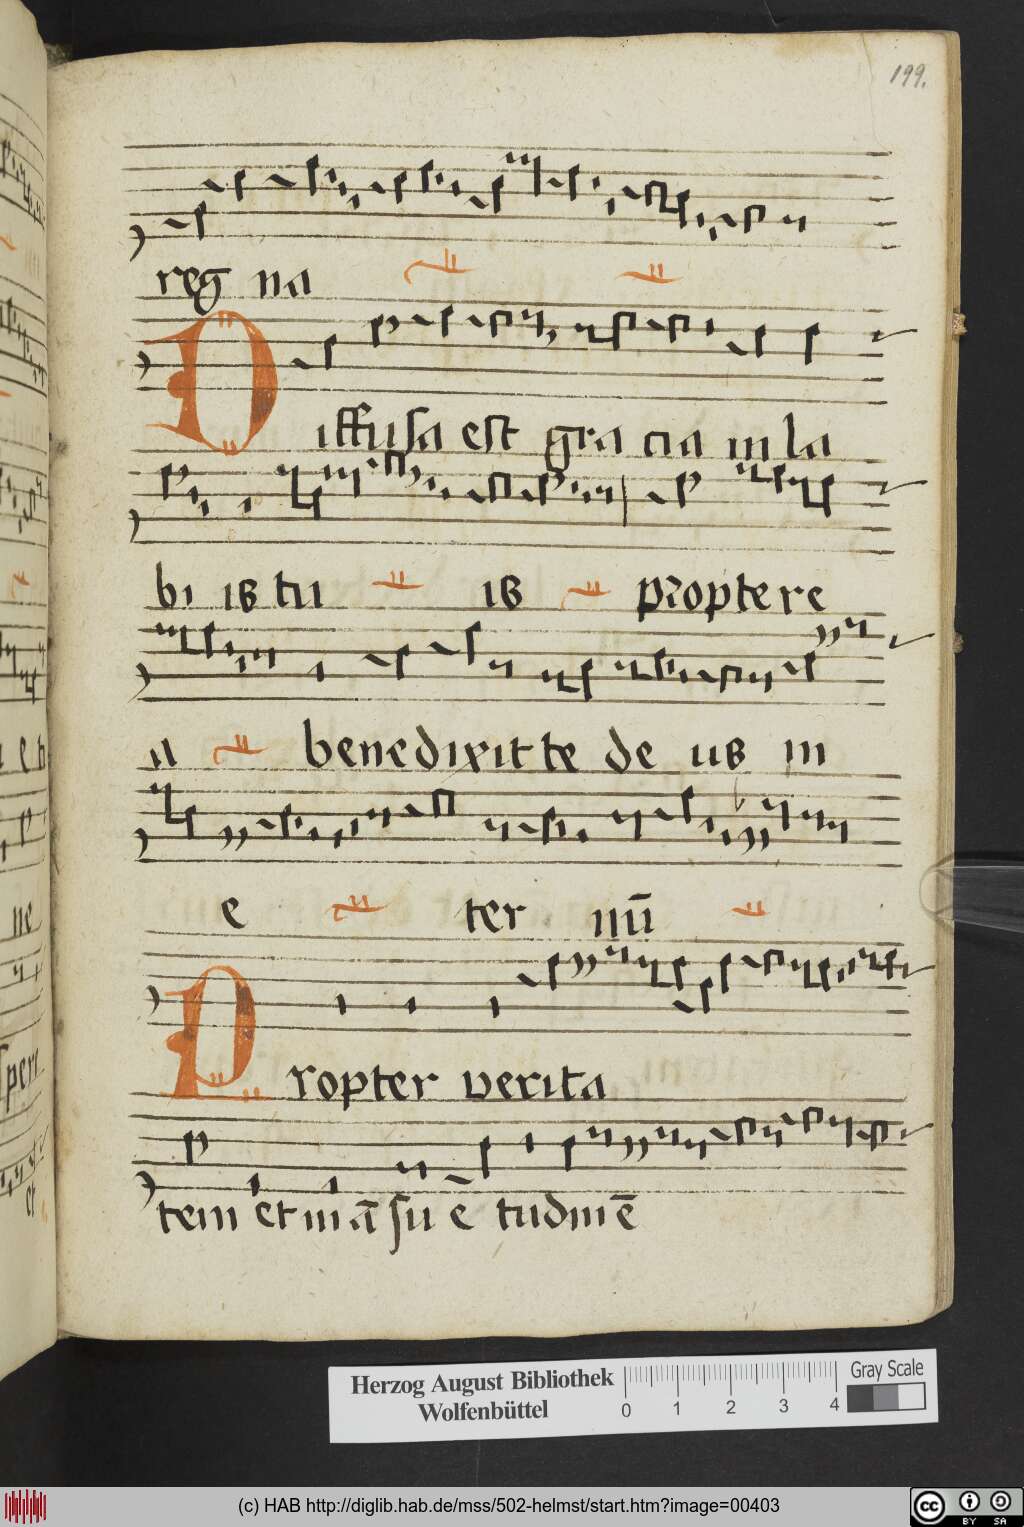 199.
reg na
Diffusa est gra cia in la
bi is tu is proptere
a benedixit te de us in
e ter nū
Propter verita
tem et mā su e tudinē
Herzog August Bibliothek
Wolfenbüttel
0 1 2 3 4
Gray Scale
(c) HAB http://diglib.hab.de/mss/502-helmst/start.htm?image=00403
cc BY SA